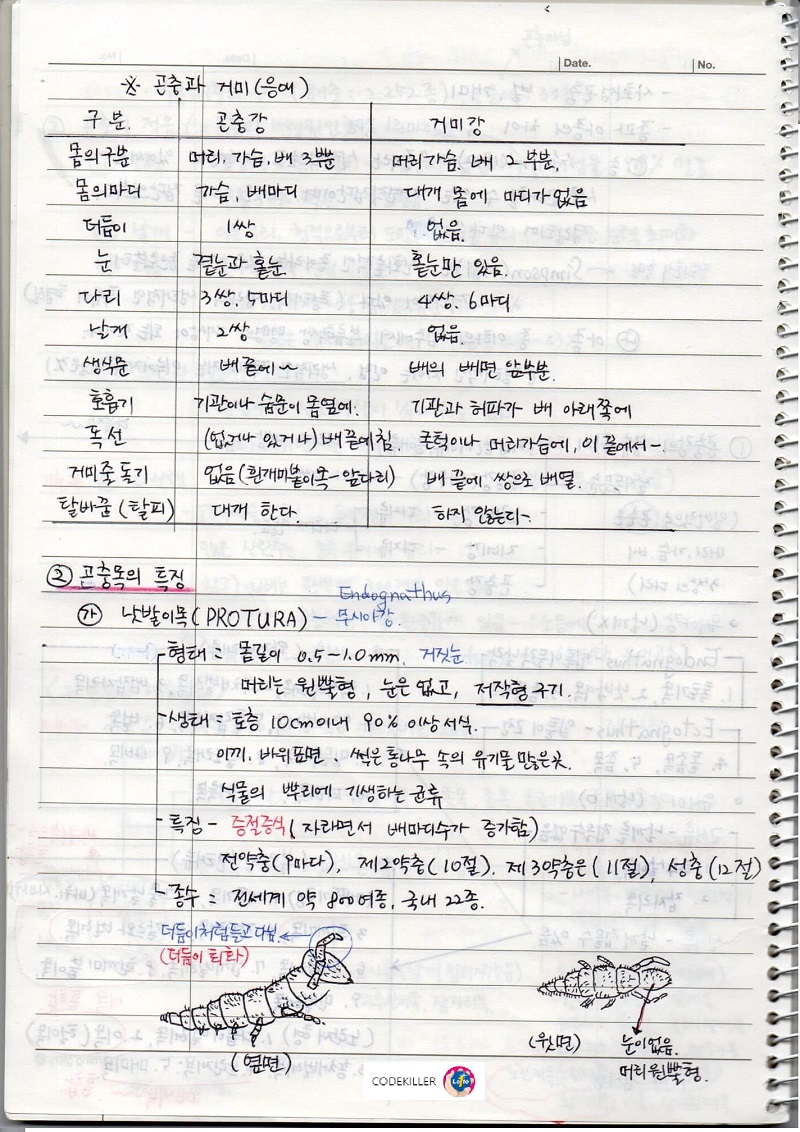 Date.
No.
※ 곤충과 거미(응애)
구분. 곤충강 거미강
몸의구분 머리, 가슴, 배 3부분 머리가슴. 배 2부분.
몸의마디 가슴, 배마디 대개 몸에 마디가 없음
더듬이 1쌍 없음.
눈 겹눈과 홑눈 홑눈만 있음.
다리 3쌍, 5마디 4쌍, 6마디
날개 2쌍 없음.
생식문 배 끝에~ 배의 배면 앞부분.
호흡기 기관이나 숨문이 몸옆에. 기관과 허파가 배 아래쪽에
독선 (없거나 있거나) 배 끝에 침. 큰턱이나 머리가슴에, 이 끝에서~.
거미줄돌기 없음(흰개미붙이목-앞다리) 배 끝에, 쌍으로 배열.
탈바꿈 (탈피) 대개 한다. 하지 않는다~
② 곤충목의 특징
㉮ 낫발이목(PROTURA) - 무시아강. Endognathus
형태 = 몸길이 0.5-1.0mm. 거짓눈
머리는 원뿔형, 눈은 없고, 저작형 구기.
생태 = 토층 10cm이내 90% 이상 서식.
이끼. 바위표면. 썩은 통나무 속의 유기물 많은곳.
식물의 뿌리에 기생하는 균류
특징 - 증절증식( 자라면서 배마디수가 증가함)
전약충(9마디), 제2약충(10절). 제3약충은(11절), 성충(12절)
종수 = 전세계 약 800여종, 국내 22종.
더듬이처럼 들고 다님.
(더듬이 퇴화)
(옆면)
(윗면)
눈이없음.
머리 원뿔형.
CODEKILLER